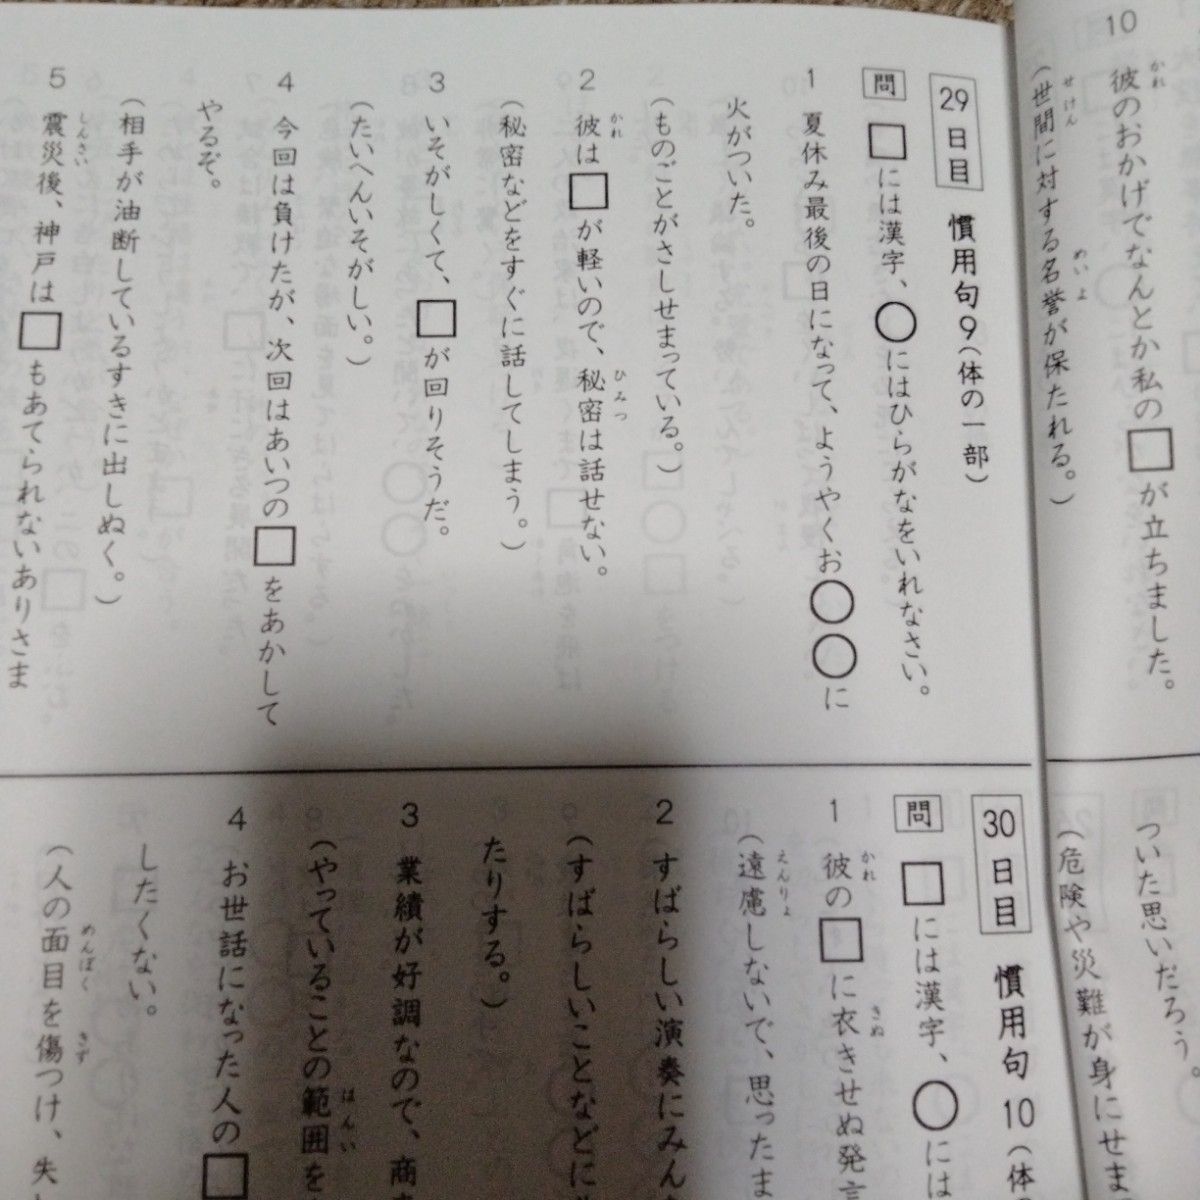 10 彼のおかげでなんとか私の□が立ちました。
かれ
(世間に対する名誉が保たれる。)
せけん めいよ
29日目 慣用句9(体の一部)
問 □には漢字、○にはひらがなをいれなさい。
1 夏休み最後の日になって、ようやくお○○に
火がついた。
(ものごとがさしせまっている。)
2 彼は□が軽いので、秘密は話せない。
かれ ひみつ
(秘密などをすぐに話してしまう。)
3 いそがしくて、□が回りそうだ。
(たいへんいそがしい。)
4 今回は負けたが、次回はあいつの□をあかして
やるぞ。
(相手が油断しているすきに出しぬく。)
5 震災後、神戸は□もあてられないありさま
しんさい
ついた思いだろう。
(危険や災難が身にせま
30日目 慣用句10(体
問 □には漢字、○には
1 彼の□に衣きせぬ発言
かれ きぬ
(遠慮しないで、思ったま
えんりょ
2 すばらしい演奏にみん
(すばらしいことなどに
たりする。)
3 業績が好調なので、商
(やっていることの範囲を
はんい
4 お世話になった人の□
したくない。
(人の面目を傷つけ、失
めんぼく きず